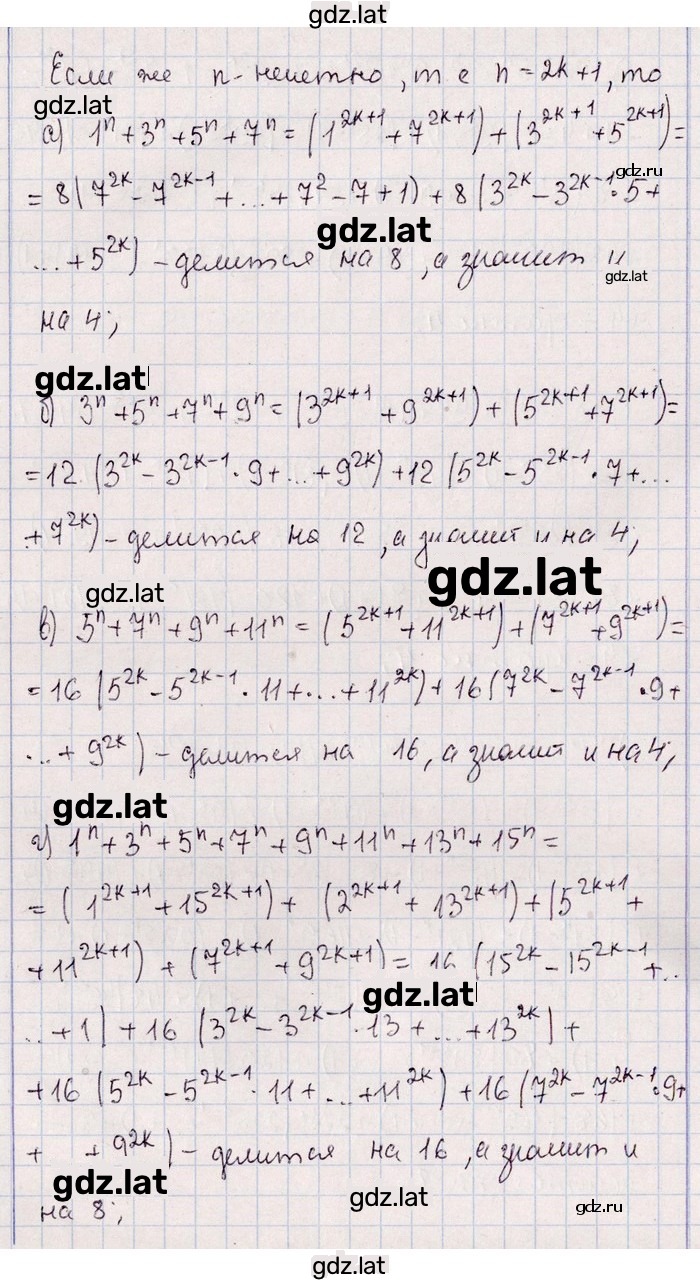 gdz.lat
Если же n - нечетно, т е n = 2k+1, то
gdz.lat
а) 1ⁿ + 3ⁿ + 5ⁿ + 7ⁿ = (1^{2k+1} + 7^{2k+1}) + (3^{2k+1} + 5^{2k+1}) =
gdz.ru
= 8(7^{2k} - 7^{2k-1} + ... + 7² - 7 + 1) + 8 (3^{2k} - 3^{2k-1}·5 +
gdz.lat
... + 5^{2k}) - делится на 8, а значит и
gdz.lat
на 4;
gdz.lat
б) 3ⁿ + 5ⁿ + 7ⁿ + 9ⁿ = (3^{2k+1} + 9^{2k+1}) + (5^{2k+1} + 7^{2k+1}) =
= 12 (3^{2k} - 3^{2k-1}·9 + ... + 9^{2k}) + 12 (5^{2k} - 5^{2k-1}·7 + ...
+ 7^{2k}) - делится на 12, а значит и на 4;
gdz.lat
gdz.lat
в) 5ⁿ + 7ⁿ + 9ⁿ + 11ⁿ = (5^{2k+1} + 11^{2k+1}) + (7^{2k+1} + 9^{2k+1}) =
= 16 (5^{2k} - 5^{2k-1}·11 + ... + 11^{2k}) + 16 (7^{2k} - 7^{2k-1}·9 +
... + 9^{2k}) - делится на 16, а значит и на 4;
gdz.lat
г) 1ⁿ + 3ⁿ + 5ⁿ + 7ⁿ + 9ⁿ + 11ⁿ + 13ⁿ + 15ⁿ =
= (1^{2k+1} + 15^{2k+1}) + (2^{2k+1} + 13^{2k+1}) + (5^{2k+1} +
+ 11^{2k+1}) + (7^{2k+1} + 9^{2k+1}) = 16 (15^{2k} - 15^{2k-1} + ...
gdz.lat
... + 1) + 16 (3^{2k} - 3^{2k-1}·13 + ... + 13^{2k}) +
+ 16 (5^{2k} - 5^{2k-1}·11 + ... + 11^{2k}) + 16 (7^{2k} - 7^{2k-1}·9 +
+ + 9^{2k}) - делится на 16, а значит и
gdz.lat
gdz.lat
на 8;
gdz.ru
gdz.lat